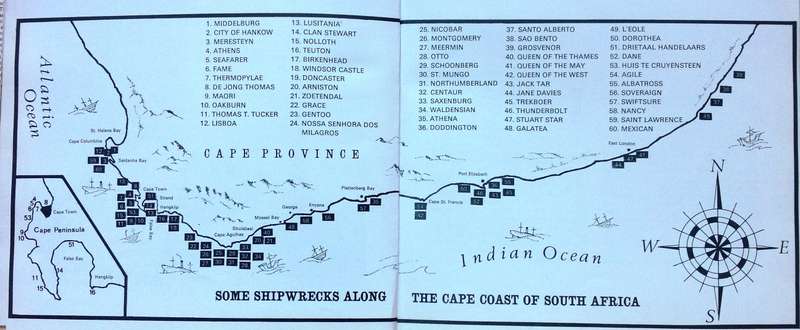 Atlantic
Ocean
1. MIDDELBURG
2. CITY OF HANKOW
3. MERESTEYN
4. ATHENS
5. SEAFARER
6. FAME
7. THERMOPYLAE
8. DE JONG THOMAS
9. MAORI
10. OAKBURN
11. THOMAS T. TUCKER
12. LISBOA
13. LUSITANIA
14. CLAN STEWART
15. NOLLOTH
16. TEUTON
17. BIRKENHEAD
18. WINDSOR CASTLE
19. DONCASTER
20. ARNISTON
21. ZOETENDAL
22. GRACE
23. GENTOO
24. NOSSA SENHORA DOS
MILAGROS
25. NICOBAR
26. MONTGOMERY
27. MEERMIN
28. OTTO
29. SCHOONBERG
30. ST. MUNGO
31. NORTHUMBERLAND
32. CENTAUR
33. SAXENBURG
34. WALDENSIAN
35. ATHENA
36. DODDINGTON
37. SANTO ALBERTO
38. SAO BENTO
39. GROSVENOR
40. QUEEN OF THE THAMES
41. QUEEN OF THE MAY
42. QUEEN OF THE WEST
43. JACK TAR
44. JANE DAVIES
45. TREKBOER
46. THUNDERBOLT
47. STUART STAR
48. GALATEA
49. L'EOLE
50. DOROTHEA
51. DRIETAAL HANDELAARS
52. DANE
53. HUIS TE CRUYENSTEEN
54. AGILE
55. ALBATROSS
56. SOVERAIGN
57. SWIFTSURE
58. NANCY
59. SAINT LAWRENCE
60. MEXICAN
St. Helena Bay
Cape Columbine
Saldanha Bay
CAPE PROVINCE
Cape Town
Strand
Hangklip
False Bay
Cape Agulhas
Struisbaai
Mossel Bay
George
Knysna
Plettenberg Bay
Cape St. Francis
Port Elizabeth
East London
Cape Town
Cape Peninsula
False Bay
Hangklip
Indian Ocean
N
W
E
S
SOME SHIPWRECKS ALONG THE CAPE COAST OF SOUTH AFRICA